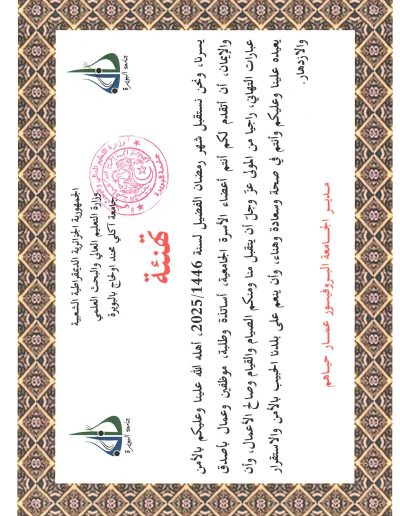 الجمهورية الجزائرية الديمقراطية الشعبية
وزارة التعليم العالي والبحث العلمي
جامعة أكلي محند أولحاج بالبويرة
جامعة البويرة
جامعة البويرة
تهنئة
يسرنا، ونحن نستقبل شهر رمضان الفضيل لسنة 2025/1446، أهله الله علينا وعليكم بالأمن
والإيمان، أن أتقدم لكم أنتم أعضاء الأسرة الجامعية، أساتذة وطلبة، موظفين وعمال بأصدق
عبارات التهاني، راجيا من المولى عز وجل أن يتقبل منا ومنكم الصيام والقيام وصالح الأعمال، وأن
يعيده علينا وعليكم وأنتم في صحة وسعادة وهناء، وأن ينعم على بلدنا الحبيب بالأمن والاستقرار
والازدهار.
مدير الجامعة البروفيسور عمار حياهم